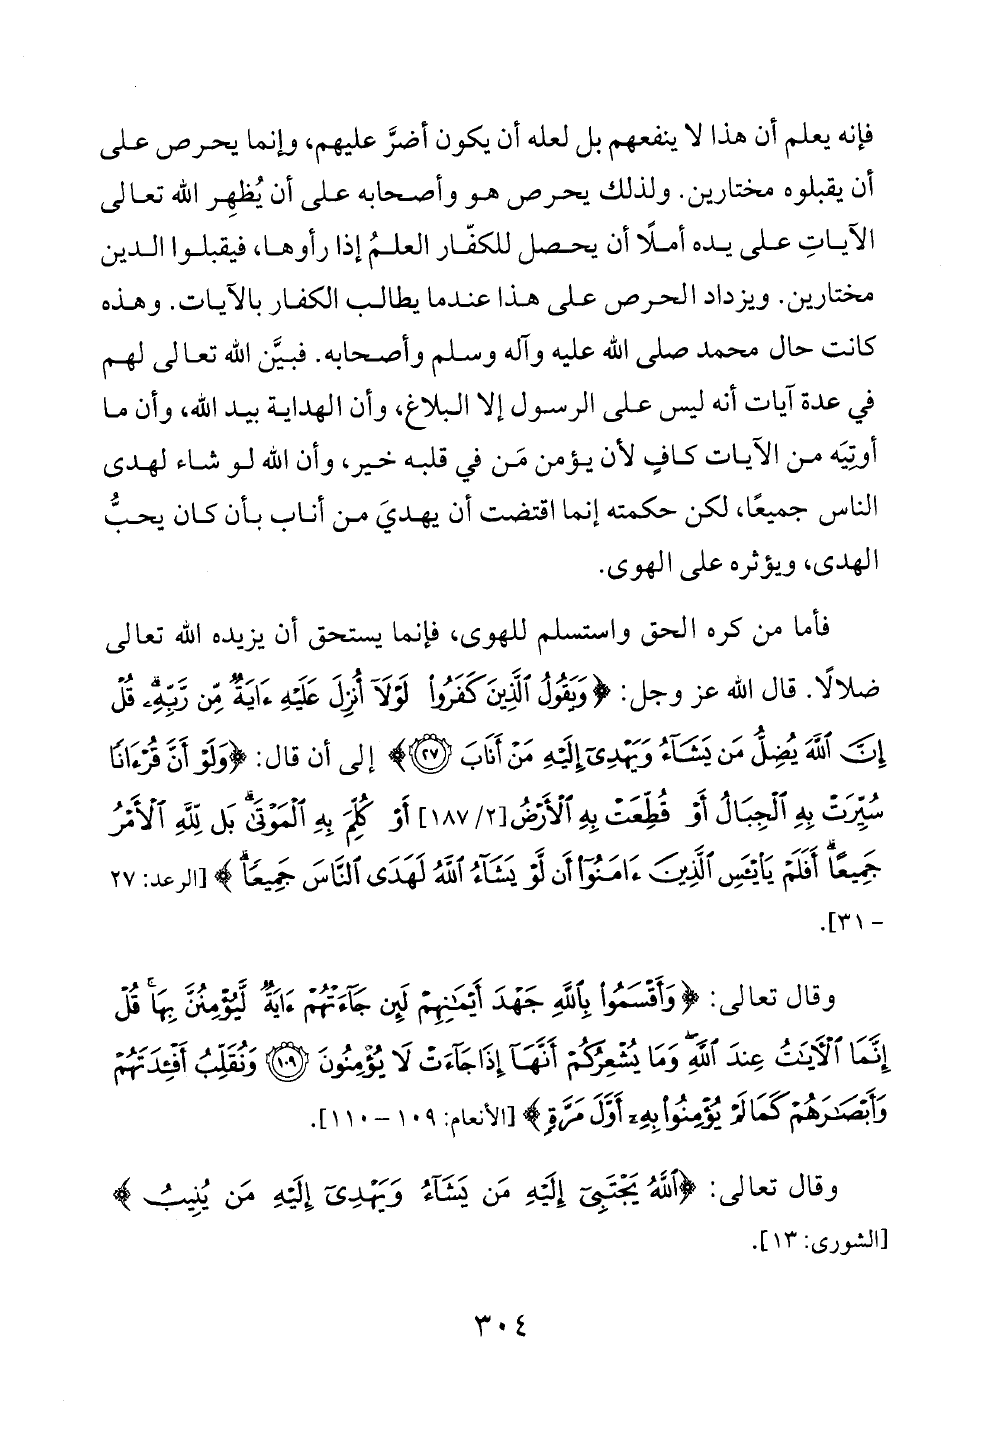 فإنه يعلم أن هذا لا ينفعهم بل لعله أن يكون أضرَّ عليهم، وإنما يحرص على
أن يقبلوه مختارين. ولذلك يحرص هو وأصحابه على أن يُظهِر الله تعالى
الآياتِ على يده أملًا أن يحصل للكفّار العلمُ إذا رأوها، فيقبلوا الدين
مختارين. ويزداد الحرص على هذا عندما يطالب الكفار بالآيات. وهذه
كانت حال محمد صلى الله عليه وآله وسلم وأصحابه. فبيَّن الله تعالى لهم
في عدة آيات أنه ليس على الرسول إلا البلاغ، وأن الهداية بيد الله، وأن ما
أوتِيَه من الآيات كافٍ لأن يؤمن مَن في قلبه خير، وأن الله لو شاء لهدى
الناس جميعًا، لكن حكمته إنما اقتضت أن يهديَ من أناب بأن كان يحبُّ
الهدى، ويؤثره على الهوى.
فأما من كره الحق واستسلم للهوى، فإنما يستحق أن يزيده الله تعالى
ضلالًا. قال الله عز وجل: ﴿وَيَقُولُ ٱلَّذِينَ كَفَرُوا۟ لَوْلَآ أُنزِلَ عَلَيْهِ ءَايَةٌ مِّن رَّبِّهِۦ ۗ قُلْ
إِنَّ ٱللَّهَ يُضِلُّ مَن يَشَآءُ وَيَهْدِىٓ إِلَيْهِ مَنْ أَنَابَ ﴿٢٧﴾﴾ إلى أن قال: ﴿وَلَوْ أَنَّ قُرْءَانًا
سُيِّرَتْ بِهِ ٱلْجِبَالُ أَوْ قُطِّعَتْ بِهِ ٱلْأَرْضُ [٢/ ١٨٧] أَوْ كُلِّمَ بِهِ ٱلْمَوْتَىٰ ۗ بَل لِّلَّهِ ٱلْأَمْرُ
جَمِيعًا ۗ أَفَلَمْ يَا۟يْـَٔسِ ٱلَّذِينَ ءَامَنُوٓا۟ أَن لَّوْ يَشَآءُ ٱللَّهُ لَهَدَى ٱلنَّاسَ جَمِيعًا ۗ﴾ [الرعد: ٢٧
- ٣١].
وقال تعالى: ﴿وَأَقْسَمُوا۟ بِٱللَّهِ جَهْدَ أَيْمَٰنِهِمْ لَئِن جَآءَتْهُمْ ءَايَةٌ لَّيُؤْمِنُنَّ بِهَا ۚ قُلْ
إِنَّمَا ٱلْءَايَٰتُ عِندَ ٱللَّهِ ۖ وَمَا يُشْعِرُكُمْ أَنَّهَآ إِذَا جَآءَتْ لَا يُؤْمِنُونَ ﴿١٠٩﴾ وَنُقَلِّبُ أَفْـِٔدَتَهُمْ
وَأَبْصَٰرَهُمْ كَمَا لَمْ يُؤْمِنُوا۟ بِهِۦٓ أَوَّلَ مَرَّةٍ﴾ [الأنعام: ١٠٩ - ١١٠].
وقال تعالى: ﴿ٱللَّهُ يَجْتَبِىٓ إِلَيْهِ مَن يَشَآءُ وَيَهْدِىٓ إِلَيْهِ مَن يُنِيبُ﴾
[الشورى: ١٣].
٣٠٤